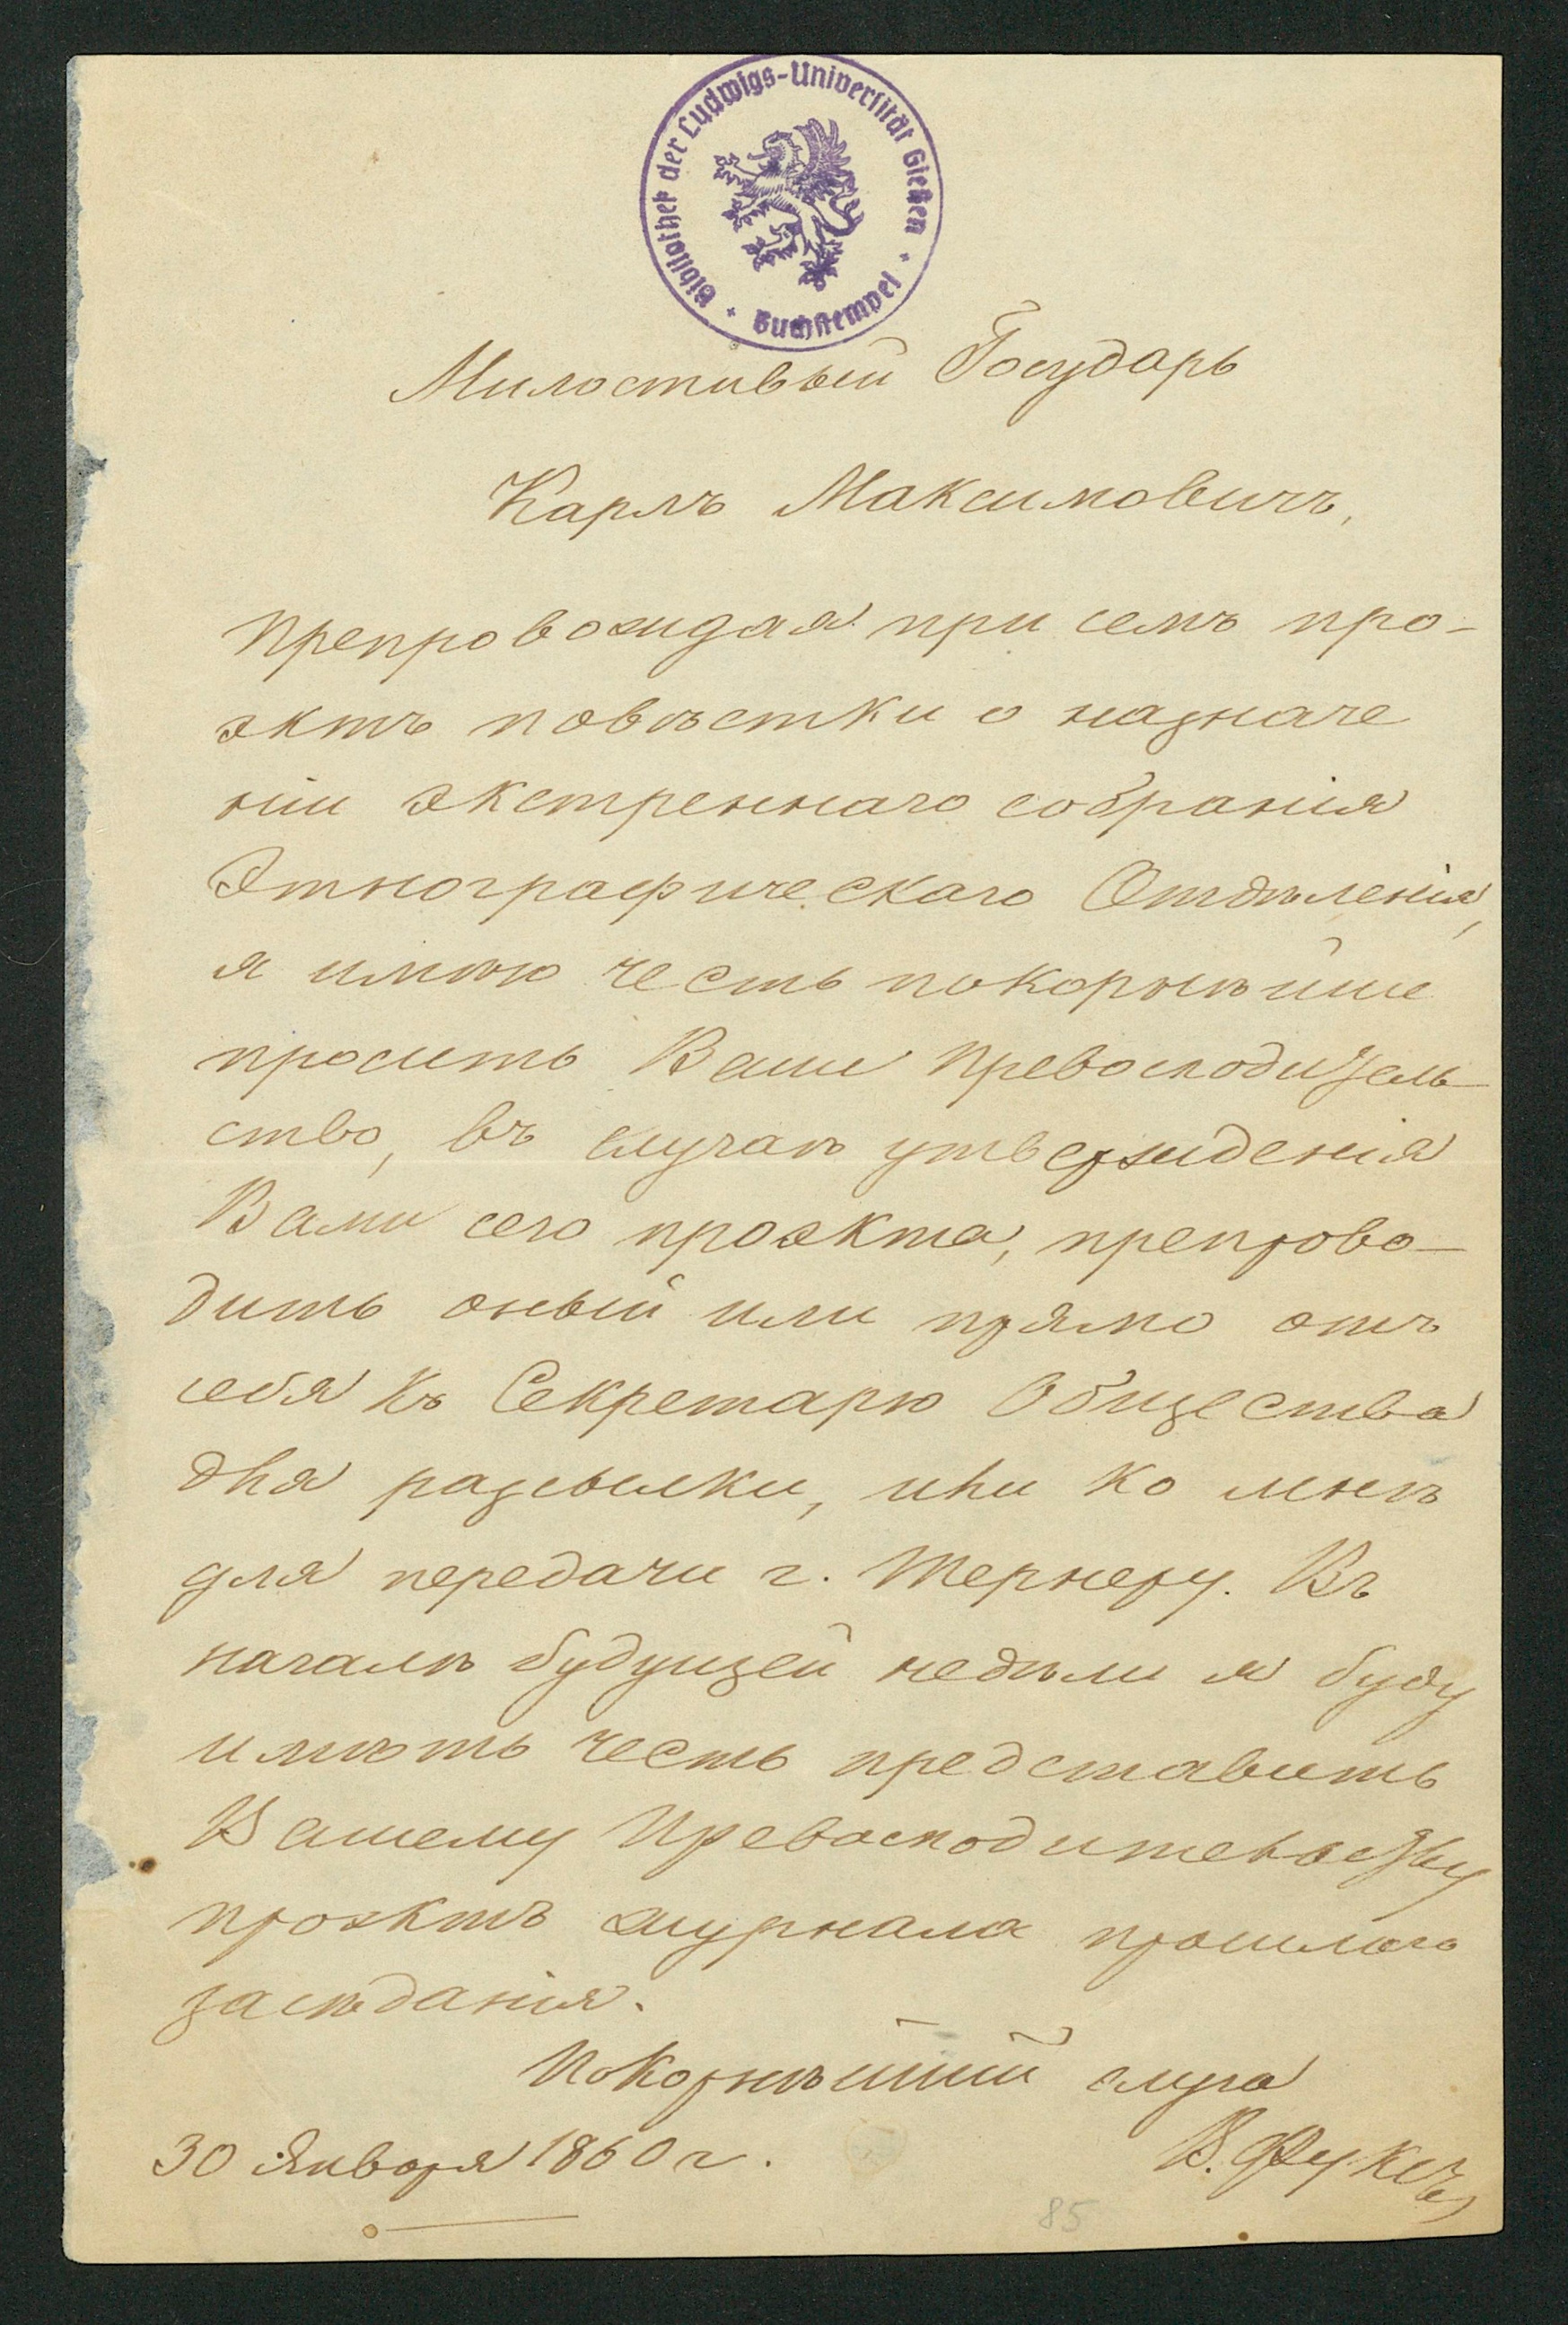 Bibliothek der Ludwigs-Universität Gießen
Buchstempel
Милостивый Государь
Карлъ Максимовичъ,
Препровождая при семъ про-
эктъ повѣстки о назначе
ніи экстреннаго собранія
Этнографическаго Отдѣленія,
я имѣю честь покорнѣйше
просить Ваше Превосходитель-
ство, въ случаѣ утвержденія
Вами сего проэкта, препрово-
дить оный или прямо отъ
себя къ Секретарю Общества
для разсылки, или ко мнѣ
для передачи г. Тернеру. Въ
началѣ будущей недѣли я буду
имѣть честь представить
Вашему Превосходительству
проэктъ журнала прошлаго
засѣданія.
Покорнѣйшій слуга
30 Января 1860 г. В. Фуксъ
85